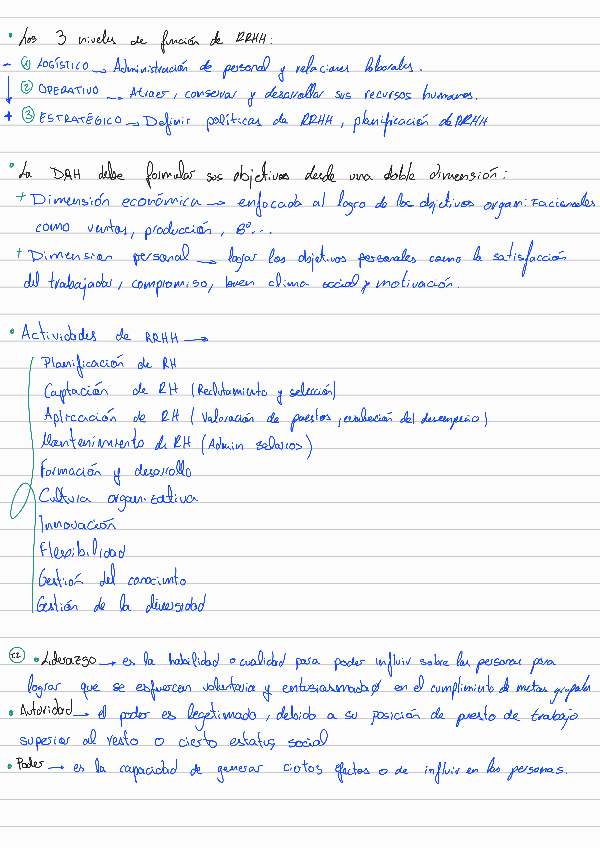 • Los 3 niveles de función de RRHH:
- ① LOGÍSTICO → Administración de personal y relaciones laborales.
② OPERATIVO → Atraer, conservar y desarrollar sus recursos humanos.
+ ③ ESTRATÉGICO → Definir políticas de RRHH, planificación de RRHH
• La DRH debe formular sus objetivos desde una doble dimensión:
+ Dimensión económica → enfocada al logro de los objetivos organizacionales
como ventas, producción, Bº...
+ Dimension personal → lograr los objetivos personales como la satisfacción
del trabajador, compromiso, buen clima social y motivación.
• Actividades de RRHH →
Planificación de RH
Captación de RH (Reclutamiento y selección)
Aplicación de RH (Valoración de puestos, evaluación del desempeño)
Mantenimiento de RH (Admin salarios)
Formación y desarrollo
Cultura organizativa
Innovación
Flexibilidad
Gestión del conocimiento
Gestión de la diversidad
• Liderazgo → es la habilidad o cualidad para poder influir sobre las personas para
lograr que se esfuercen voluntaria y entusiasmadas en el cumplimiento de metas grupales
• Autoridad → el poder es legitimado, debido a su posición de puesto de trabajo
superior al resto o cierto estatus social
• Poder → es la capacidad de generar ciertos efectos o de influir en las personas.